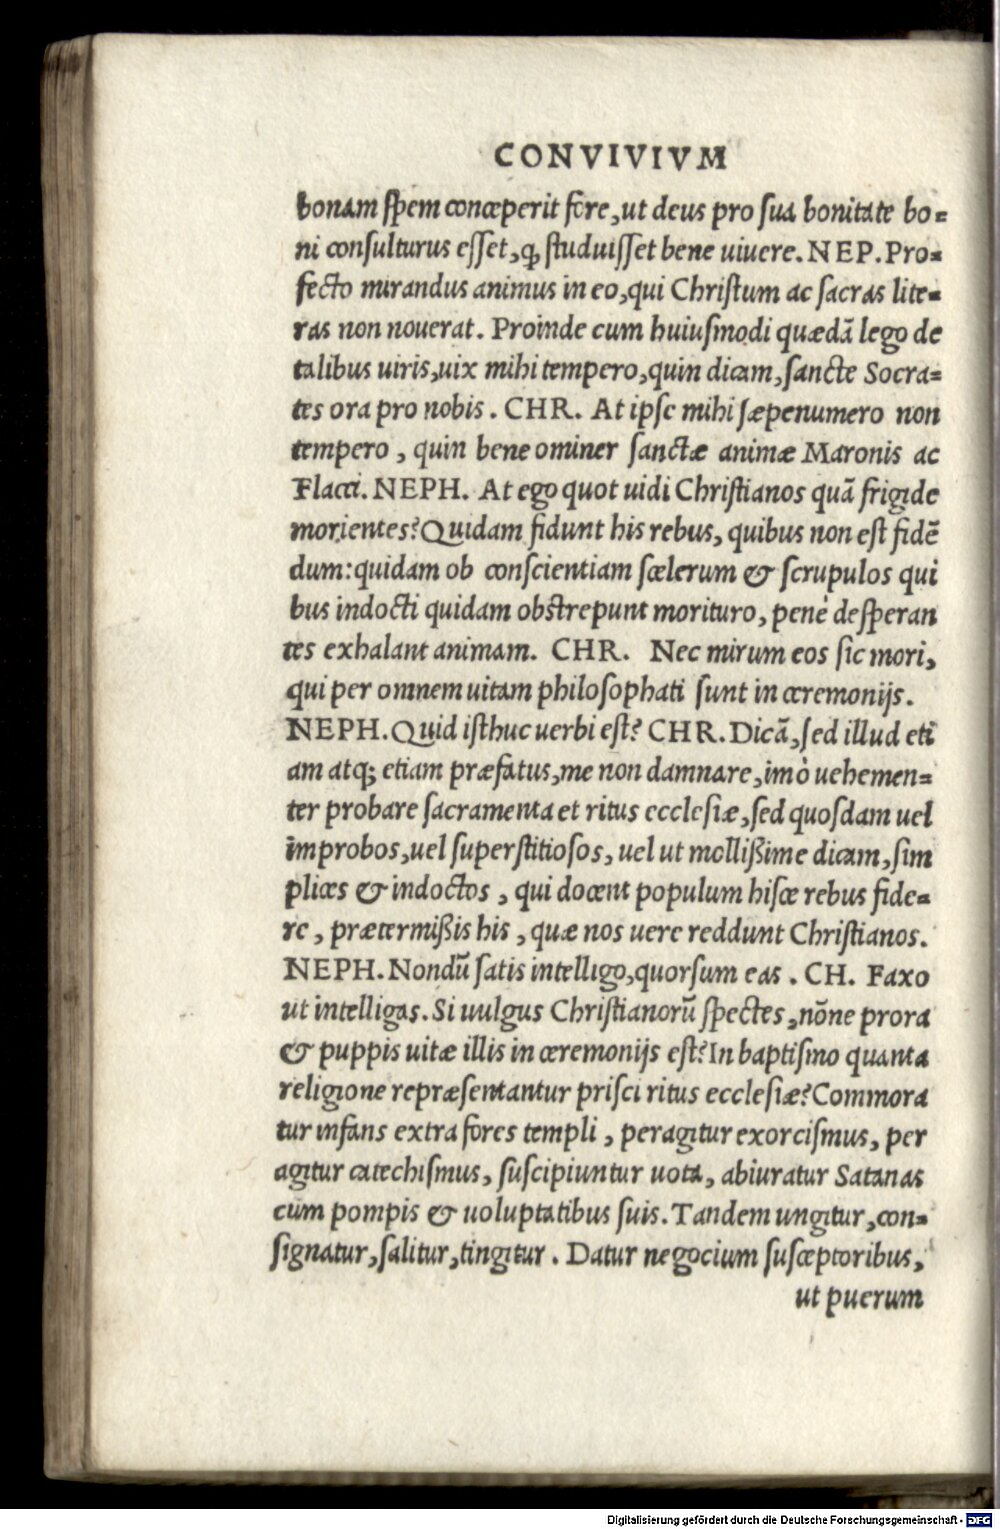 CONVIVIVM
bonam ſpem conceperit fore, ut deus pro ſua bonitate bo=
ni conſulturus eſſet, ꝙ ſtuduiſſet bene uiuere. NEP. Pro=
fecto mirandus animus in eo, qui Chriſtum ac ſacras lite=
ras non nouerat. Proinde cum huiuſmodi quædã lego de
talibus uiris, uix mihi tempero, quin dicam, ſancte Socra=
tes ora pro nobis. CHR. At ipſe mihi ſæpenumero non
tempero, quin bene ominer ſanctæ animæ Maronis ac
Flacci. NEPH. At ego quot uidi Chriſtianos quã frigide
morientes? Quidam fidunt his rebus, quibus non eſt fidẽ
dum: quidam ob conſcientiam ſcelerum & ſcrupulos qui
bus indocti quidam obſtrepunt morituro, penè deſperan
tes exhalant animam. CHR. Nec mirum eos ſic mori,
qui per omnem uitam philoſophati ſunt in ceremonijs.
NEPH. Quid iſthuc uerbi eſt? CHR. Dicã, ſed illud eti
am atq; etiam præfatus, me non damnare, imò uehemen=
ter probare ſacramenta et ritus eccleſiæ, ſed quoſdam uel
improbos, uel ſuperſtitioſos, uel ut molliſſime dicam, ſim
plices & indoctos, qui docent populum hiſce rebus fide=
re, prætermiſſis his, quæ nos uere reddunt Chriſtianos.
NEPH. Nondũ ſatis intelligo, quorſum eas. CH. Faxo
ut intelligas. Si uulgus Chriſtianorũ ſpectes, nõne prora
& puppis uitæ illis in ceremonijs eſt? In baptiſmo quanta
religione repræſentantur priſci ritus eccleſiæ? Commora
tur infans extra fores templi, peragitur exorciſmus, per
agitur catechiſmus, ſuſcipiuntur uota, abiuratur Satanas
cum pompis & uoluptatibus ſuis. Tandem ungitur, con=
ſignatur, ſalitur, tingitur. Datur negocium ſuſceptoribus,
ut puerum
Digitalisierung gefördert durch die Deutsche Forschungsgemeinschaft - DFG